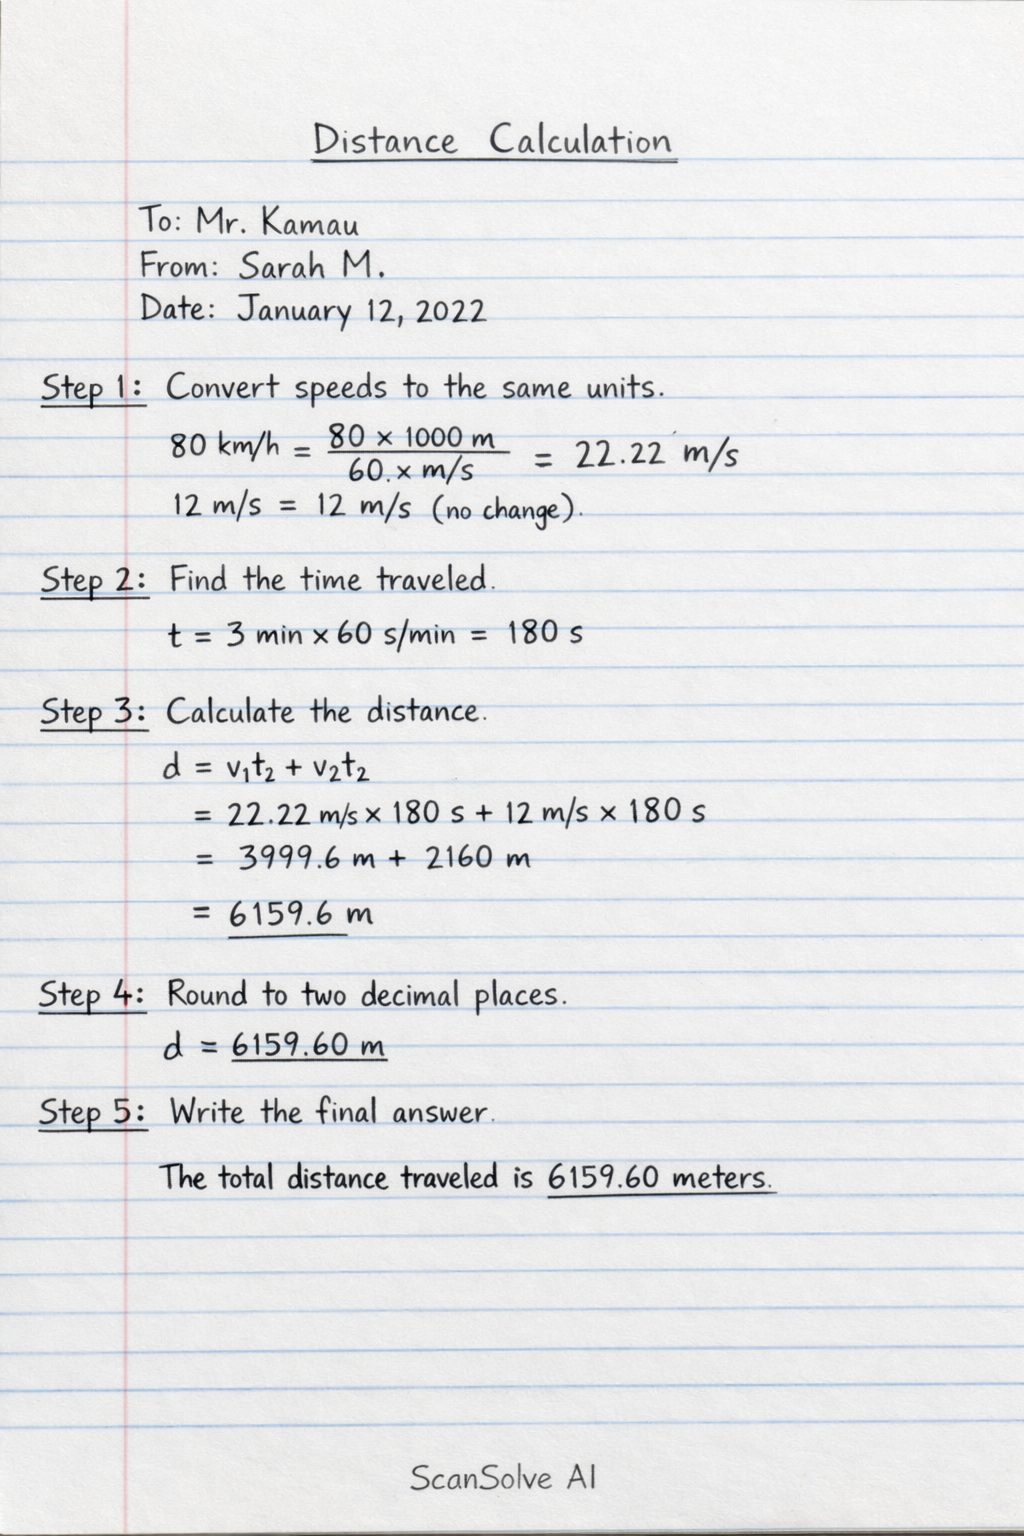 Distance Calculation
To: Mr. Kamau
From: Sarah M.
Date: January 12, 2022
Step 1: Convert speeds to the same units.
80 km/h = 80 × 1000 m / 60.× m/s = 22.22 m/s
12 m/s = 12 m/s (no change).
Step 2: Find the time traveled.
t = 3 min × 60 s/min = 180 s
Step 3: Calculate the distance.
d = v₁t₂ + v₂t₂
= 22.22 m/s × 180 s + 12 m/s × 180 s
= 3999.6 m + 2160 m
= 6159.6 m
Step 4: Round to two decimal places.
d = 6159.60 m
Step 5: Write the final answer.
The total distance traveled is 6159.60 meters.
ScanSolve AI